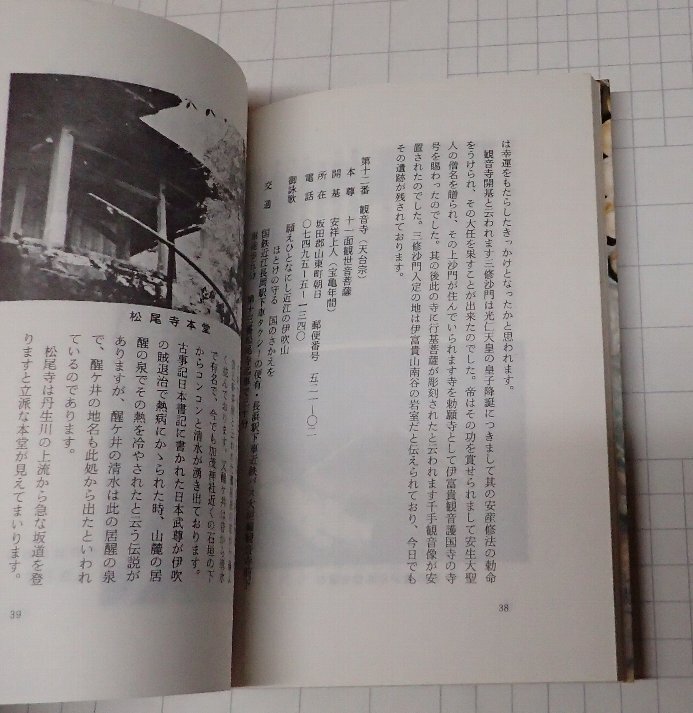 は幸運をもたらしたきっかけとなったかと思われます。
観音寺開基と云われます三修沙門は光仁天皇の皇子降誕につきまして其の安産修法の勅命
をうけられ、その大任を果すことが出来たのでした。帝はその功を賞せられまして安生大聖
人の僧名を贈られ、その上沙門が住んでいられます寺を勅願寺として伊富貴観音護国寺の寺
号を賜わったのでした。其の後此の寺に行基菩薩が彫刻されたと云われます千手観音像が安
置されたのでした。三修沙門入定の地は伊富貴山南谷の岩室だと伝えられており、今日でも
その遺跡が残されております。
第十二番 観音寺(天台宗)
本尊 十一面観世音菩薩
開基 安祥上人(宝亀年間)
所在 坂田郡山東町朝日 郵便番号 五二一—〇二
電話 〇七四九五—五—一三四〇
御詠歌 願えひとなにし近江の伊吹山
ほとけの守る 国のさかえを
交通 国鉄近江長岡駅下車タクシーの便有・長浜駅下車
38
松尾寺本堂
で有名で、今でも加茂神社近くの石垣の下
からコンコンと清水が湧き出ております。
古事記日本書記に書かれた日本武尊が伊吹
の賊退治で熱病にかゝられた時、山麓の居
醒の泉でその熱を冷やされたと云う伝説が
ありますが、醒ケ井の清水は此の居醒の泉
で、醒ケ井の地名も此処から出たといわれ
ているのであります。
松尾寺は丹生川の上流から急な坂道を登
りますと立派な本堂が見えてまいります。
39